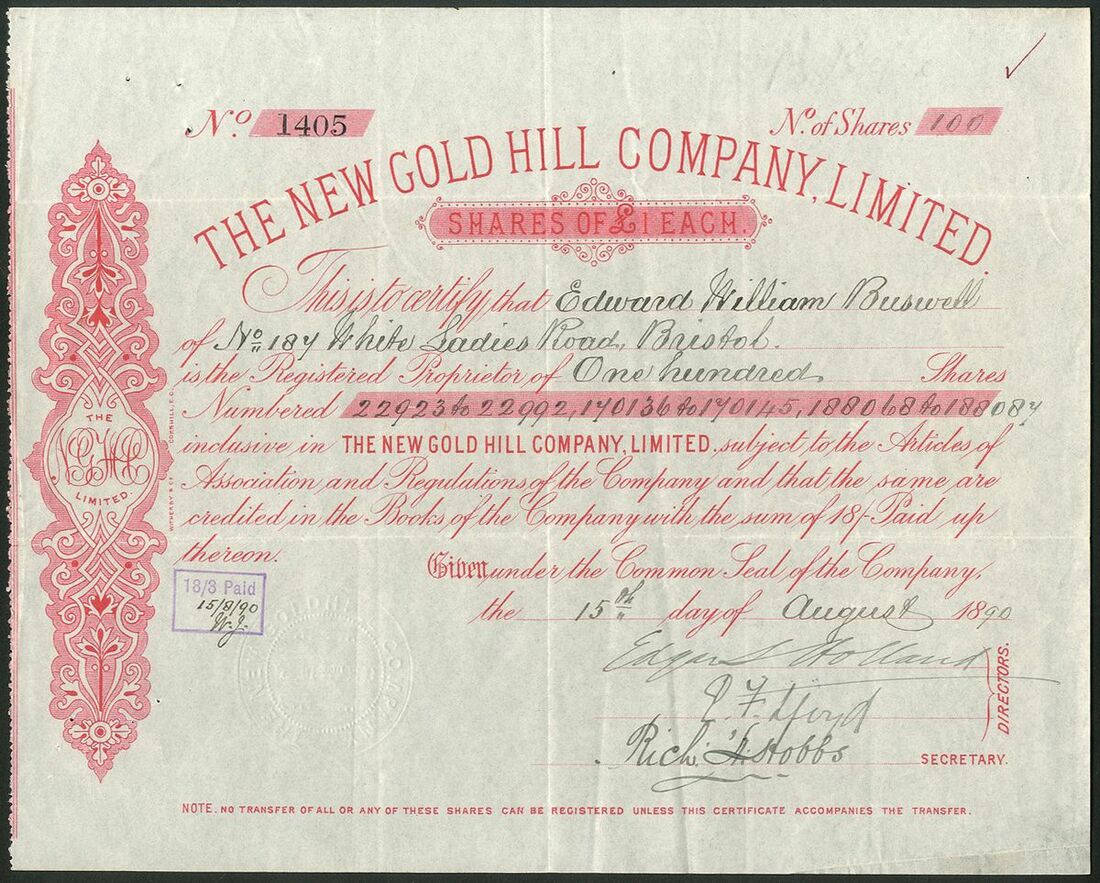 No. 1405
No. of Shares 100
THE NEW GOLD HILL COMPANY, LIMITED.
SHARES OF £1 EACH.
This is to certify that Edward William Buswell
of No. 187 White Ladies Road, Bristol.
is the Registered Proprietor of One hundred Shares
Numbered 22923 to 22992, 170136 to 170145, 188068 to 188087
inclusive in THE NEW GOLD HILL COMPANY, LIMITED. subject to the Articles of
Association and Regulations of the Company and that the same are
credited in the Books of the Company with the sum of 18/- Paid up
thereon.
Given under the Common Seal of the Company,
the 15th day of August 1890
18/3 Paid
15/8/90
THE
NGHC
LIMITED.
WITHERBY & CO. CORNHILL, E.C.
Edgar Holland
DIRECTORS.
Rich. Hobbs
SECRETARY.
NOTE. NO TRANSFER OF ALL OR ANY OF THESE SHARES CAN BE REGISTERED UNLESS THIS CERTIFICATE ACCOMPANIES THE TRANSFER.